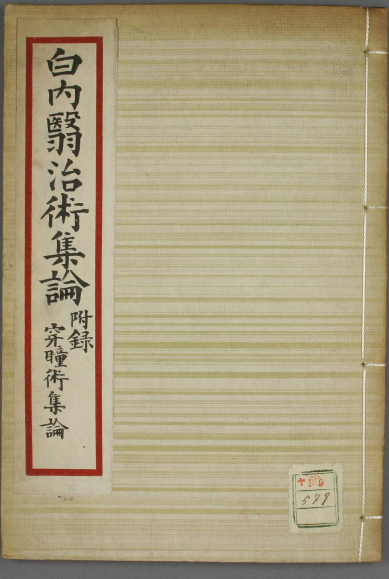 白内翳治術集論
附録
穿瞳術集論
589